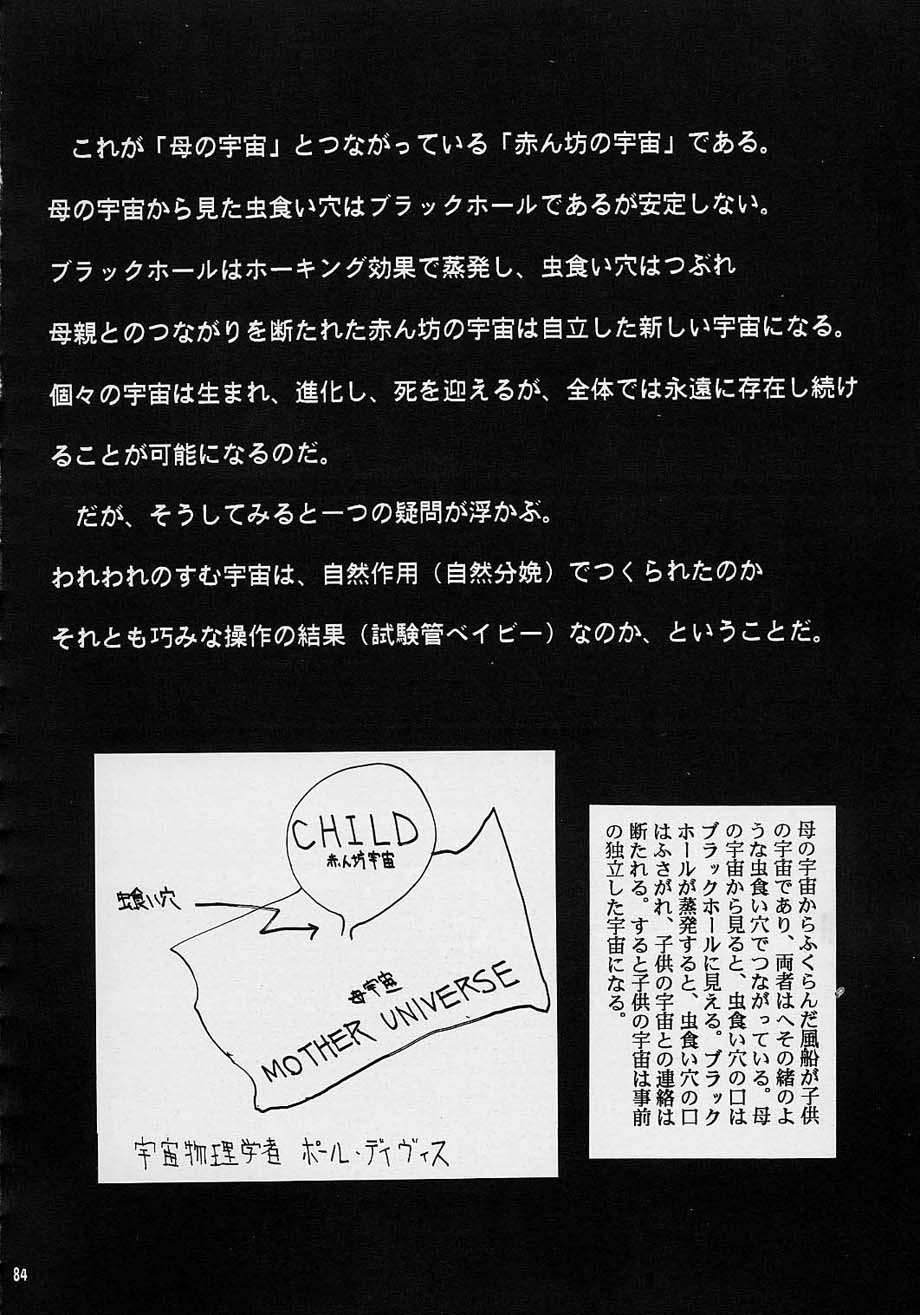 これが「母の宇宙」とつながっている「赤ん坊の宇宙」である。
母の宇宙から見た虫食い穴はブラックホールであるが安定しない。
ブラックホールはホーキング効果で蒸発し、虫食い穴はつぶれ
母親とのつながりを断たれた赤ん坊の宇宙は自立した新しい宇宙になる。
個々の宇宙は生まれ、進化し、死を迎えるが、全体では永遠に存在し続け
ることが可能になるのだ。
だが、そうしてみると一つの疑問が浮かぶ。
われわれのすむ宇宙は、自然作用（自然分娩）でつくられたのか
それとも巧みな操作の結果（試験管ベイビー）なのか、ということだ。
母の宇宙からふくらんだ風船が子供
の宇宙であり、両者はへその緒のよ
うな虫食い穴でつながっている。母
の宇宙から見ると、虫食い穴の口は
ブラックホールに見える。ブラック
ホールが蒸発すると、虫食い穴の口
はふさがれ、子供の宇宙との連絡は
断たれる。すると子供の宇宙は事前
の独立した宇宙になる。
CHILD
赤ん坊宇宙
虫食い穴
母宇宙
MOTHER UNIVERSE
宇宙物理学者 ポール・デイヴィス
84